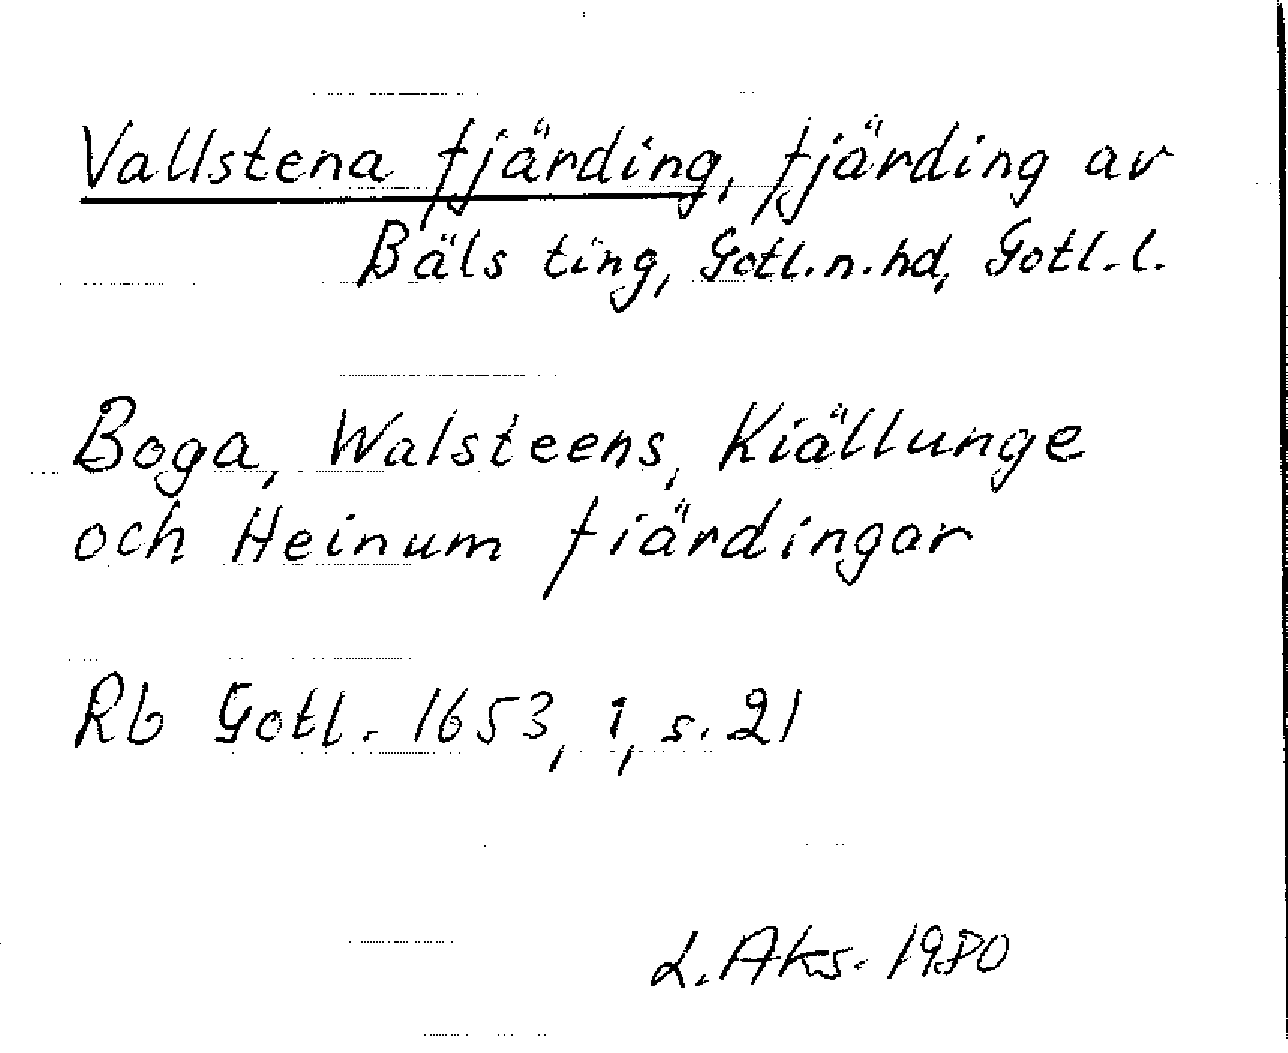 Vallstena fjärding, fjärding av
Bäls ting, Gotl.n.hd, Gotl.l.
Boga, Walsteens, Kiällunge
och Heinum fiärdingar
Rb Gotl. 1653, 1, s. 21
L. Aks. 1980